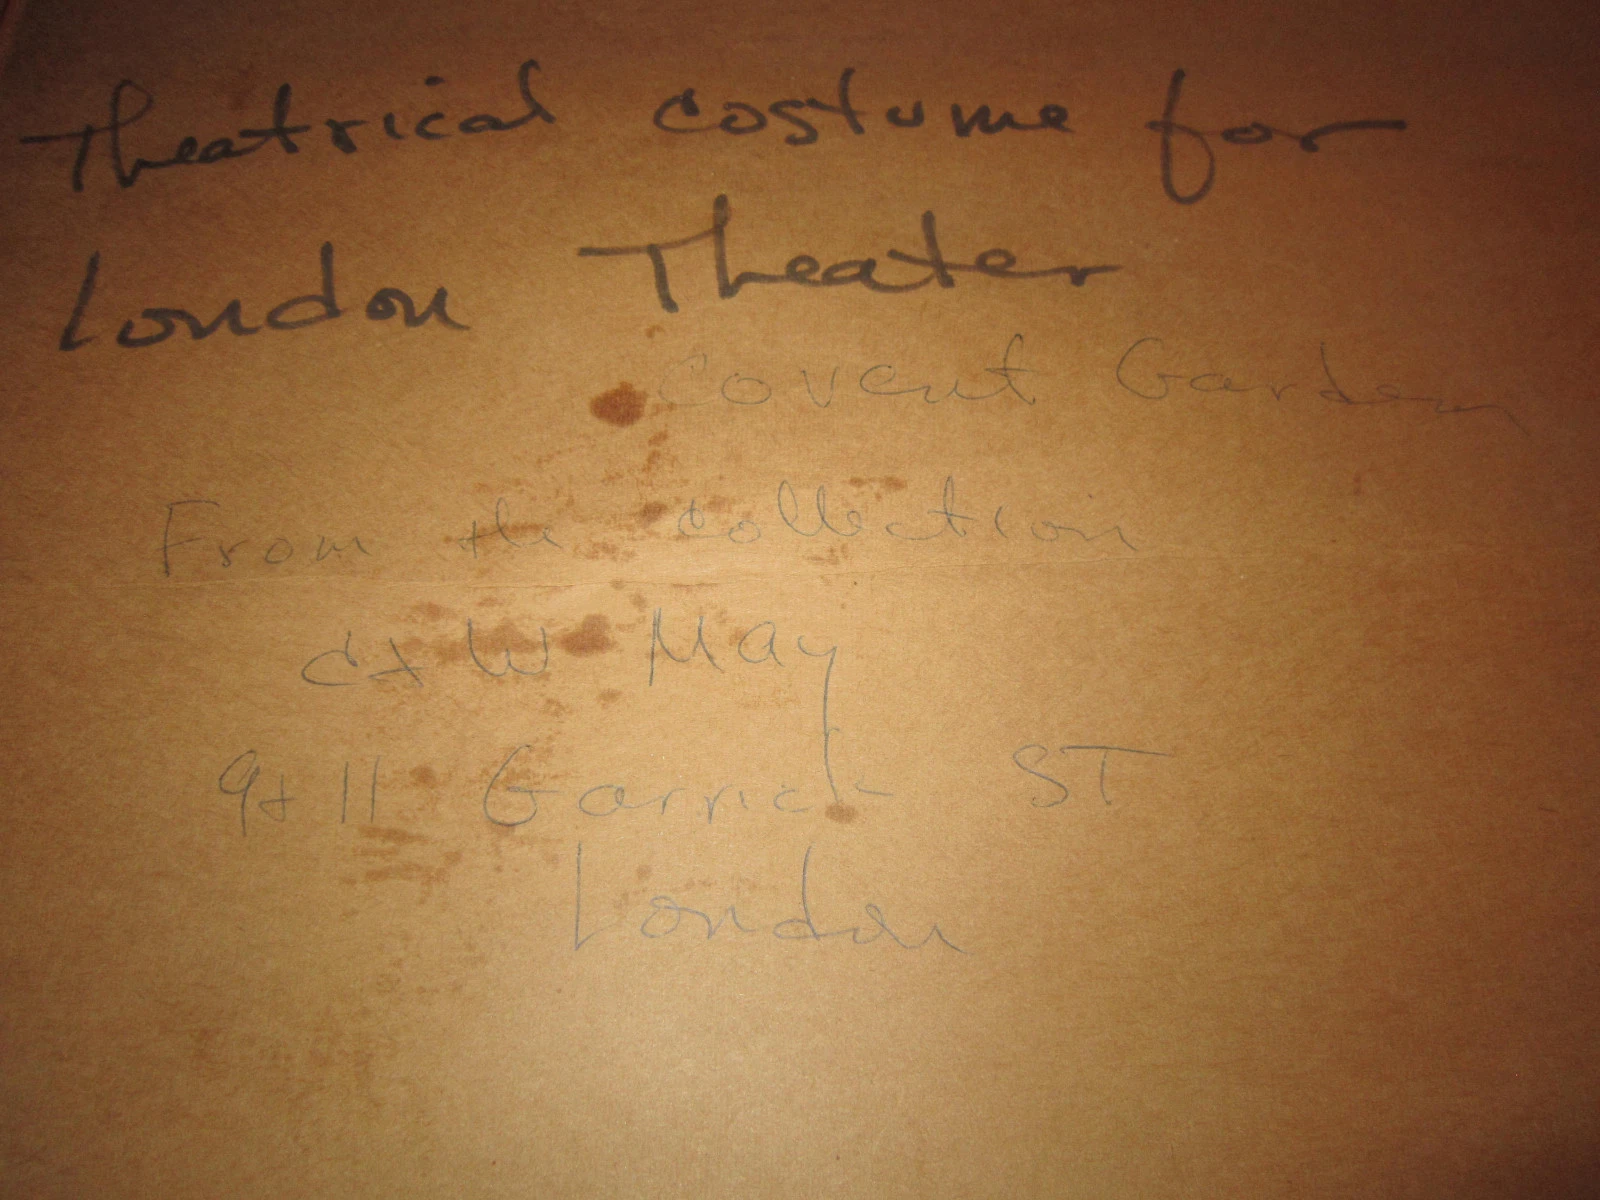 Theatrical costume for
London Theater
Covent Garden
From the collection
C + W May
9 + 11 Garrick ST
London